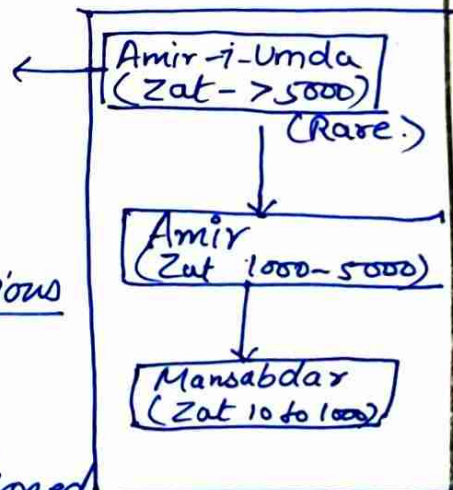 Amir-i-Umda
(Zat - >5000)
(Rare.)
Amir
(Zat 1000-5000)
ious
Mansabdar
(Zat 10 to 1000)
ioned